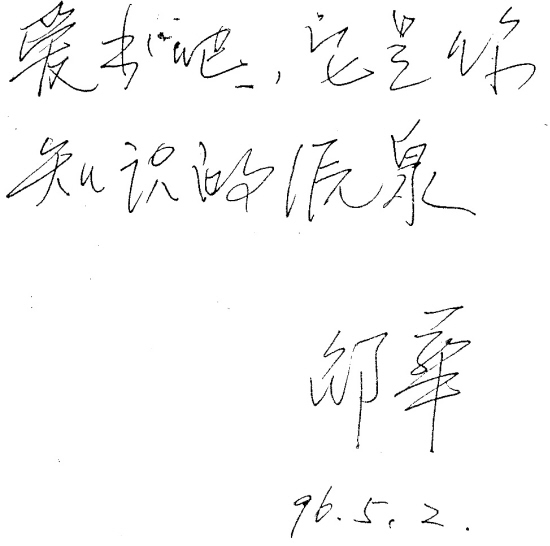 爱书吧,它是你
知识的源泉
邵華
96.5.2.